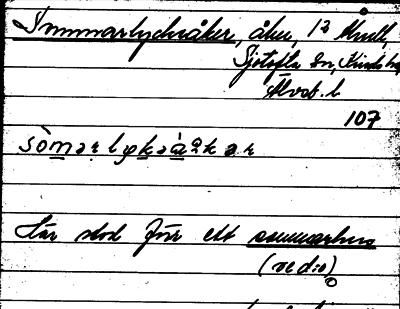 Sommarlyckeåker, åker, 12 Mull,
Sjötofta sn, Kinds hd,
Älvsb. l
107
sòmarlykəàkər
Här stod förr ett sommarhus
(se d:o)